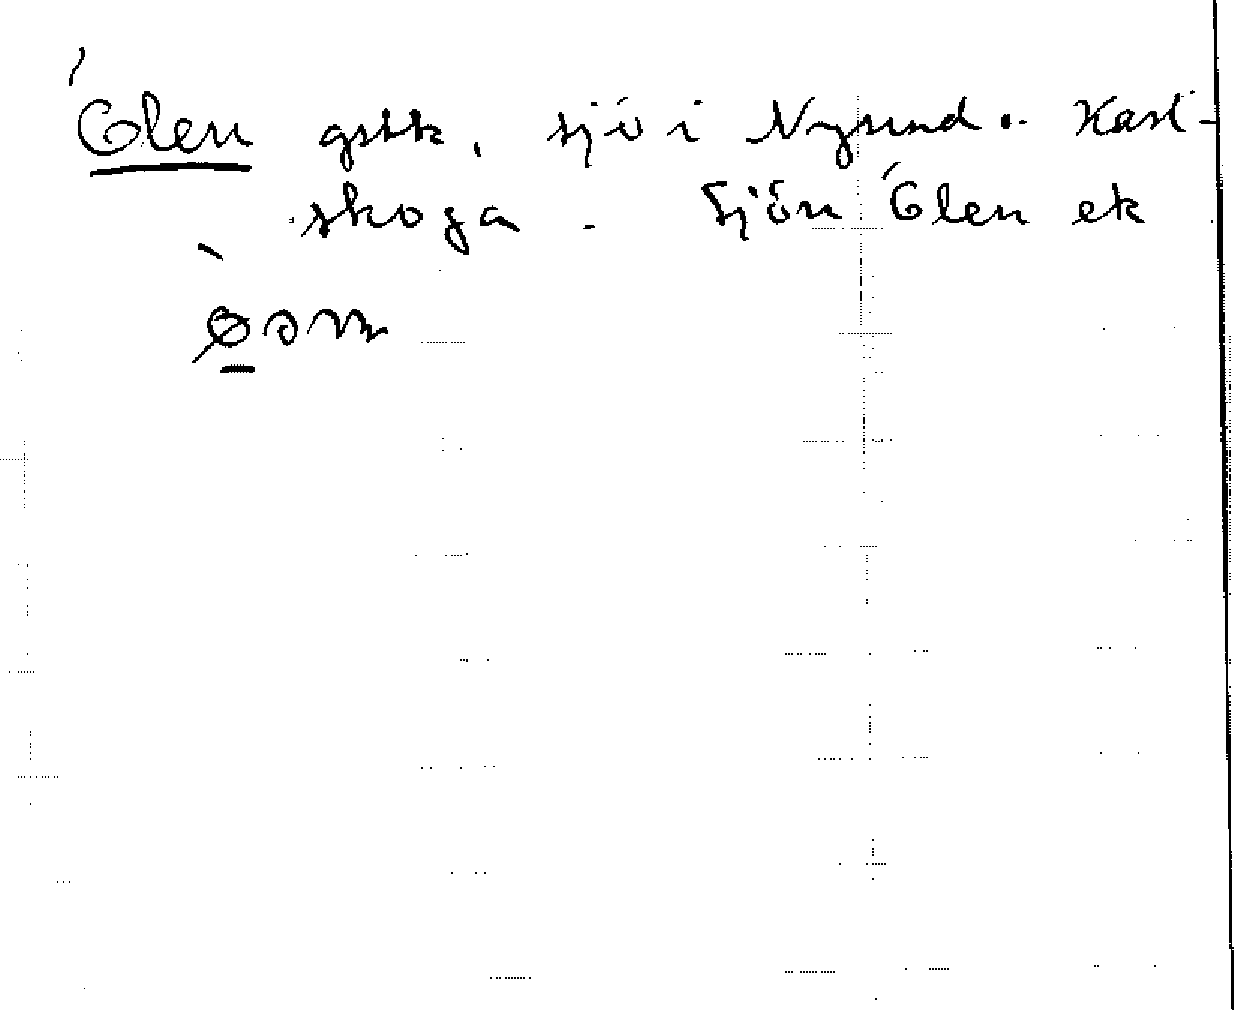 Ölen gstk, sjö i Nysund o. Karl-
skoga - Sjön Ölen ek